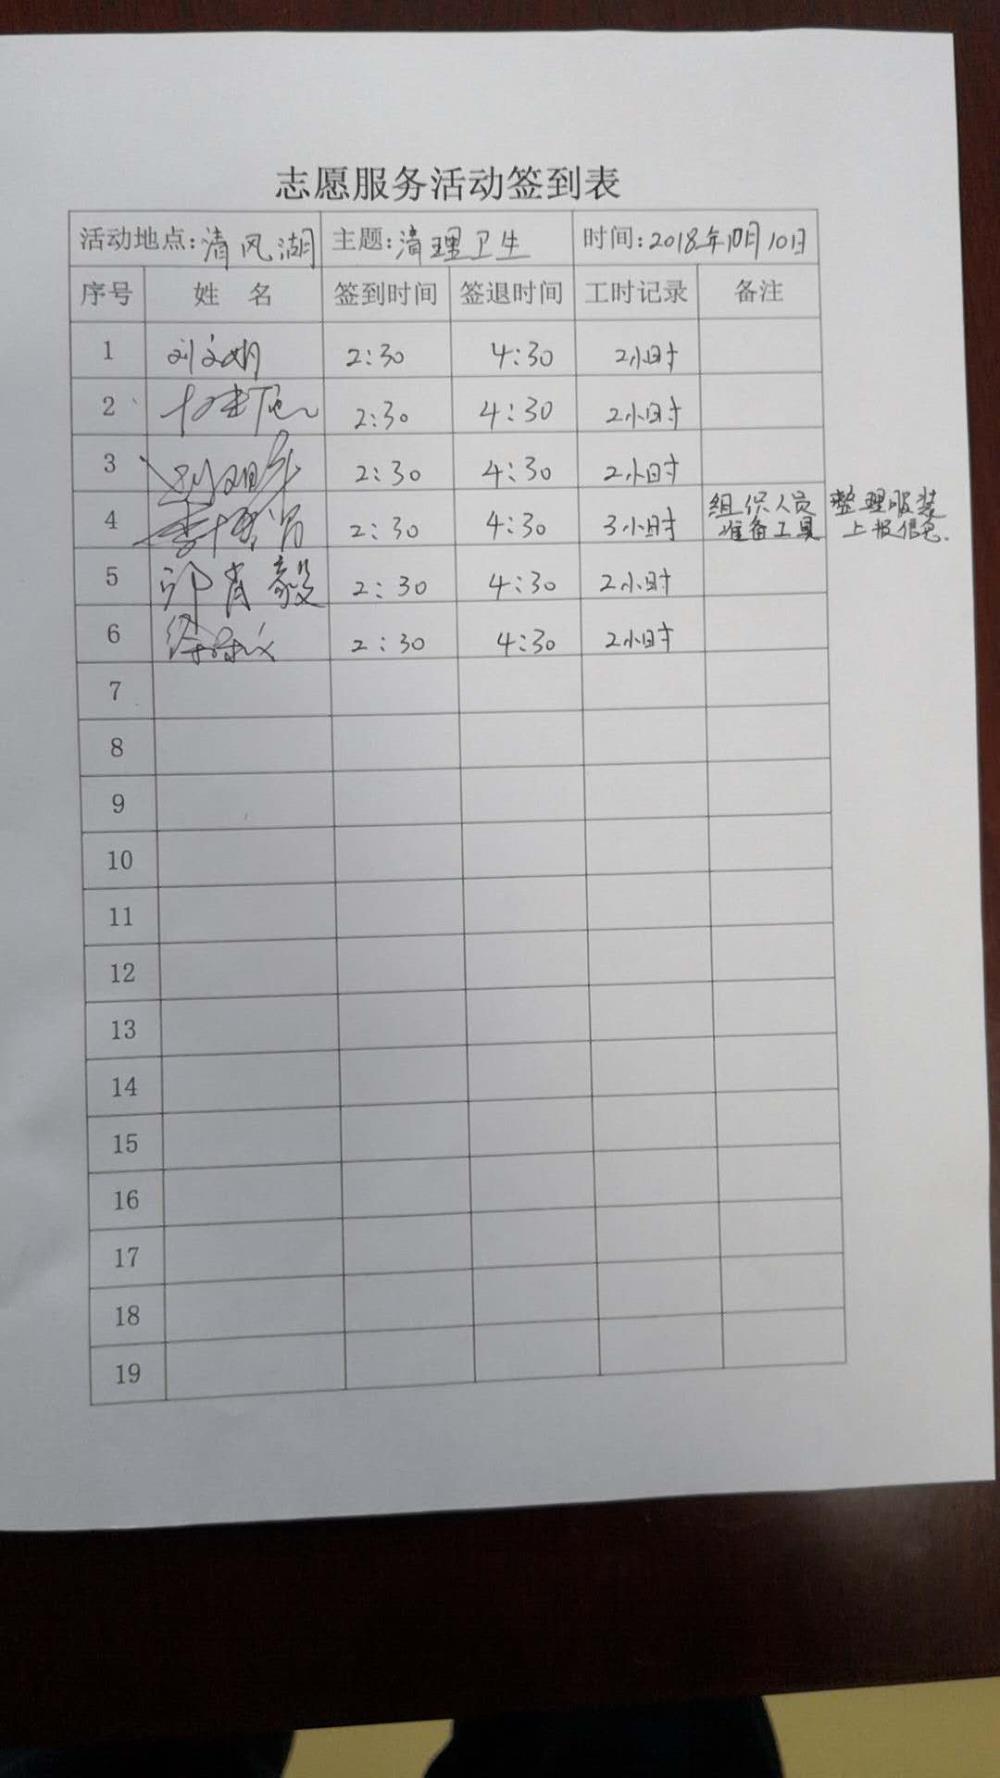 志愿服务活动签到表
活动地点:清风湖 主题:清理卫生 时间:2018年10月10日
序号 姓名 签到时间 签退时间 工时记录 备注
1 刘文娟 2:30 4:30 2小时
2 2:30 4:30 2小时
3 2:30 4:30 2小时
4 2:30 4:30 3小时 组织人员 整理服装
准备工具 上报信息.
5 邱肖毅 2:30 4:30 2小时
6 2:30 4:30 2小时
7
8
9
10
11
12
13
14
15
16
17
18
19